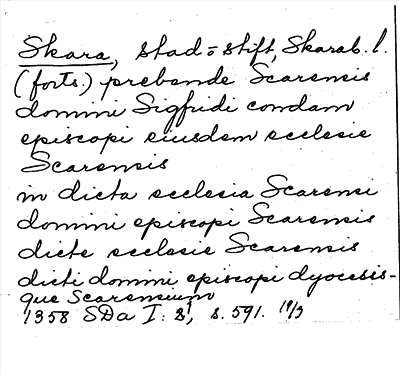 Skara, stad o stift, Skarab. l.
(forts.) prebende Scarensis
domini Sigfridi condam
episcopi eiusdem ecclesie
Scarensis
in dicta ecclesia Scarensi
domini episcopi Scarensis
dicte ecclesie Scarensis
dicti domini episcopi dyocesis-
que Scarensium
1358 SDa I: s. 591. 19/3